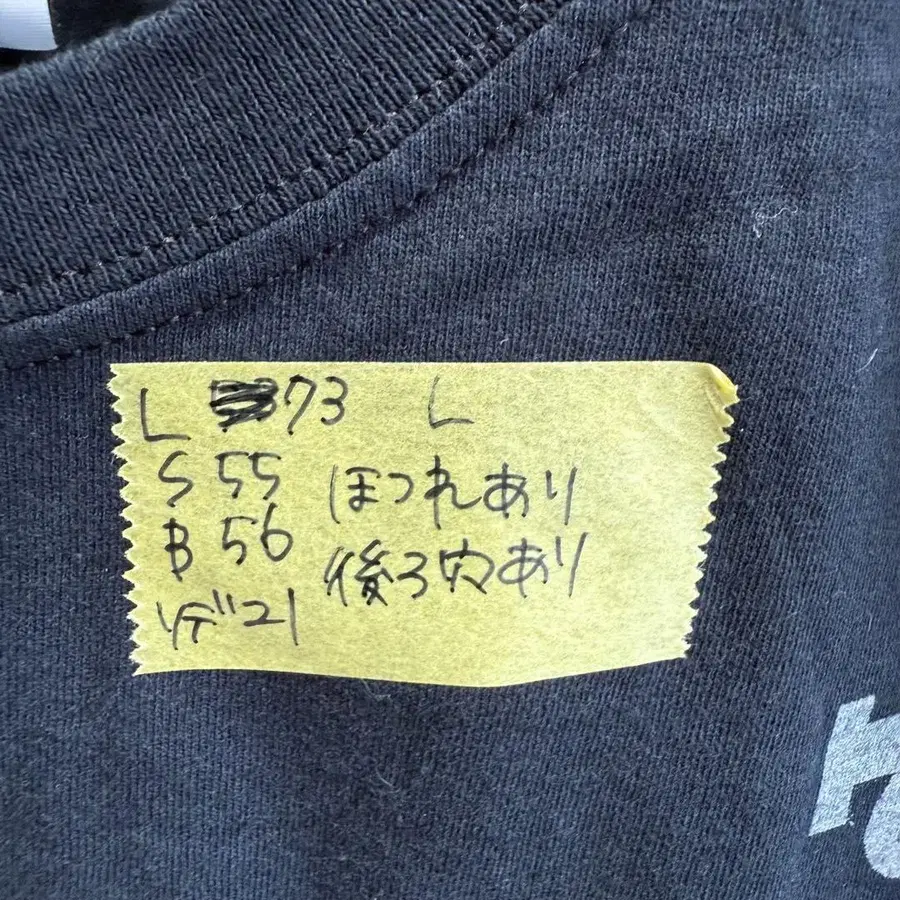 L 73 L
S 55 ほつれあり
B 56 後ろ穴あり
ソデ21